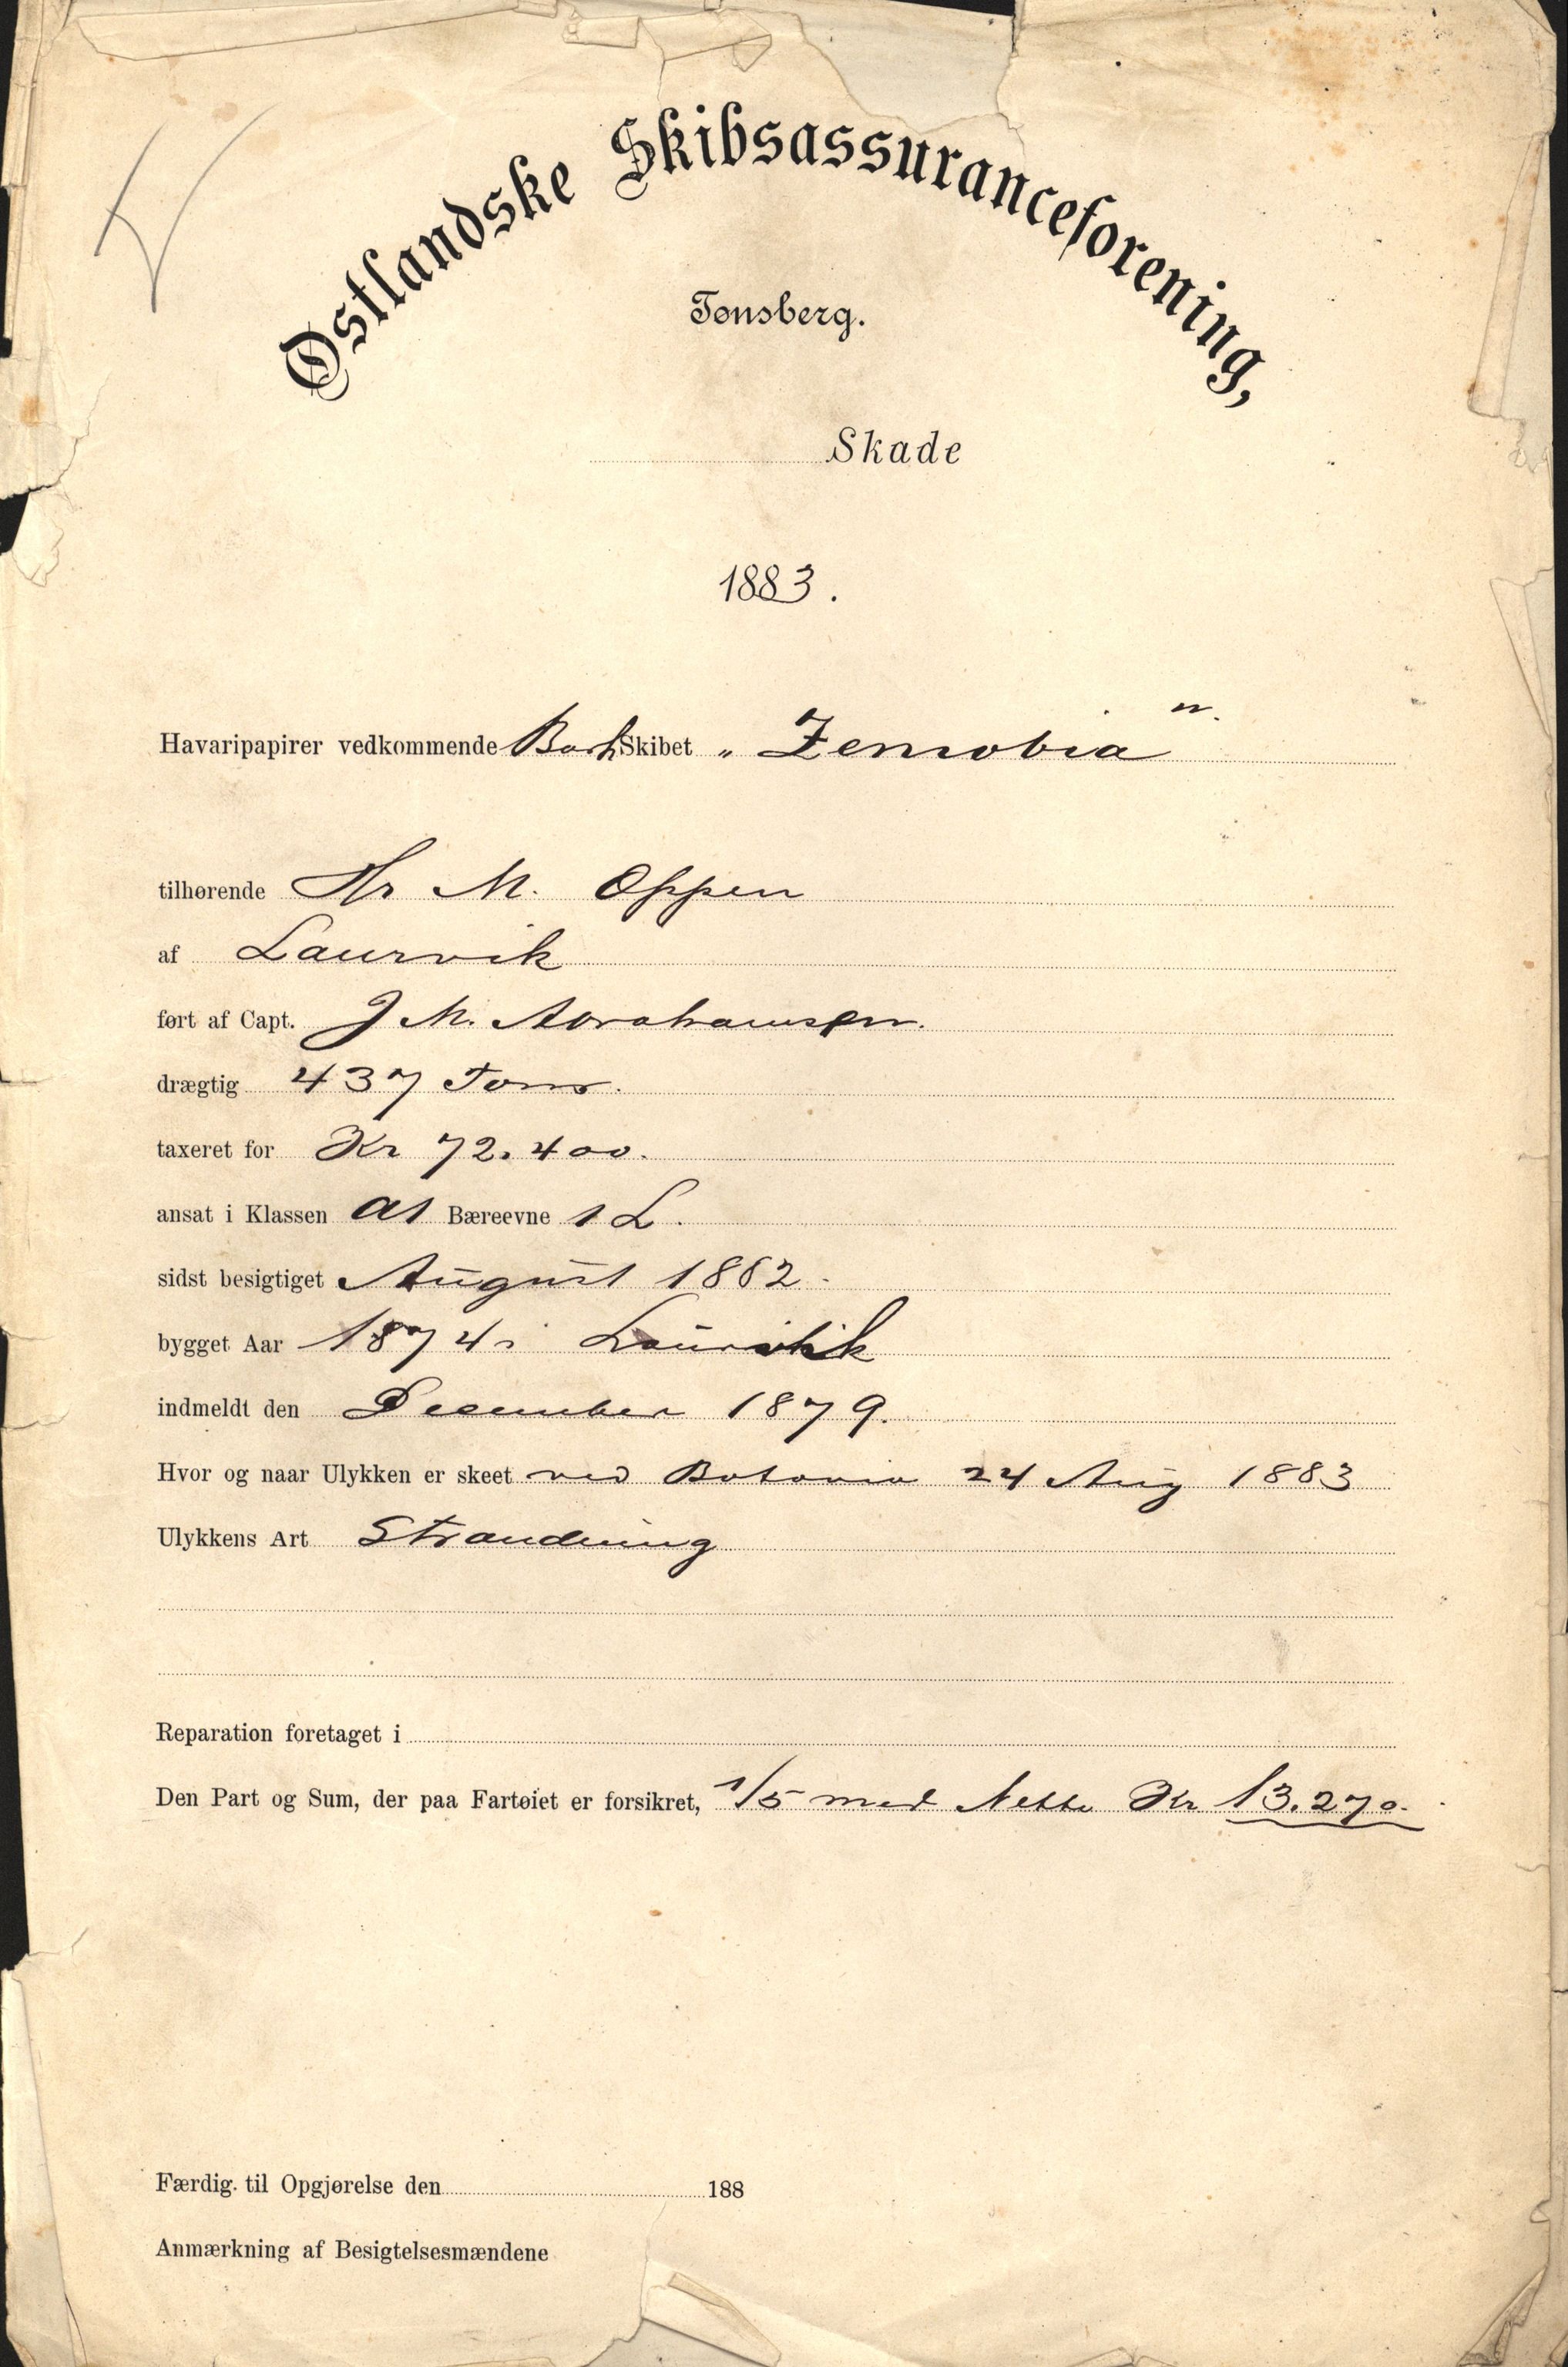 Østlandske Skibsassuranceforening,
Tønsberg.
Skade
1883.
Havaripapirer vedkommende Bark Skibet „Zenobia“.
tilhørende Hr M. Oppen
af Laurvik
ført af Capt. J M. Abrahamsen.
drægtig 437 Tons.
taxeret for Kr 72.400.
ansat i Klassen A1 Bæreevne 1 L.
sidst besigtiget August 1882.
bygget Aar 1874 i Laurvik
indmeldt den December 1879.
Hvor og naar Ulykken er skeet ved Batavia 24 Aug 1883
Ulykkens Art Strandning
Reparation foretaget i
Den Part og Sum, der paa Fartøiet er forsikret, 1/5 med Netto Kr 13.270.
Færdig til Opgjørelse den 188
Anmærkning af Besigtelsesmændene